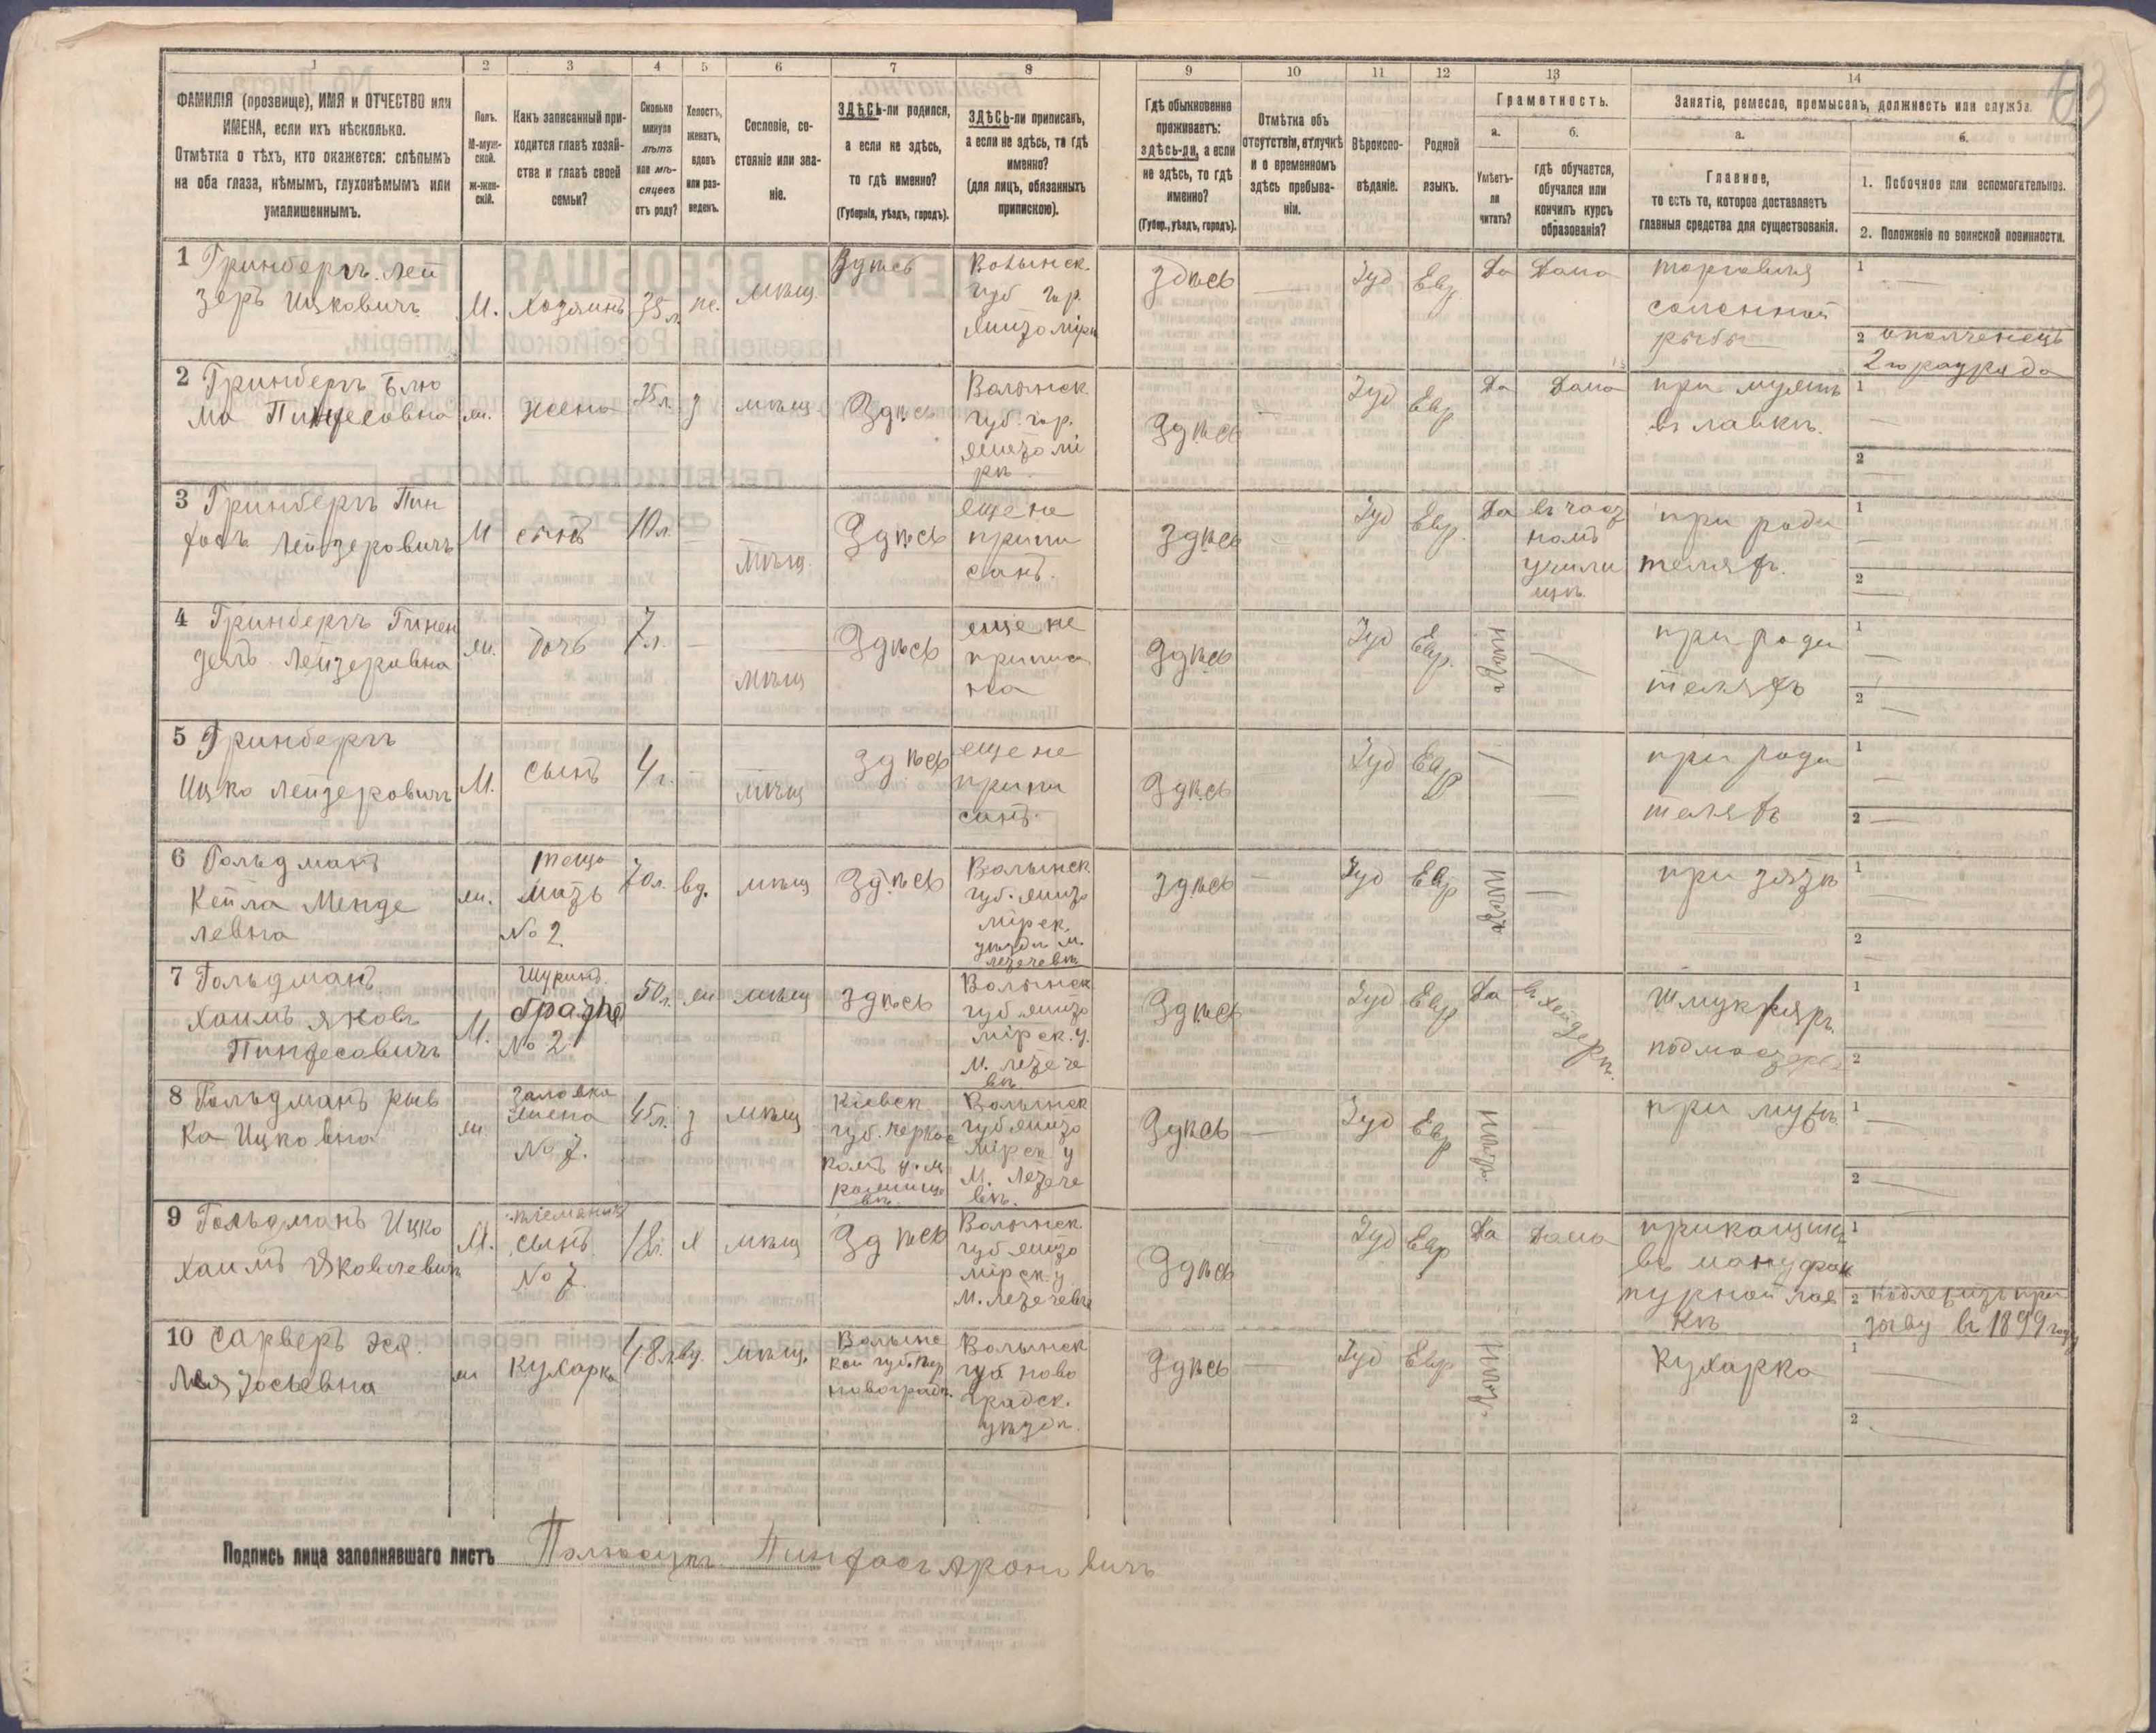 63
1 2 3 4 5 6 7 8 9 10 11 12 13 14
ФАМИЛІЯ (прозвище), ИМЯ и ОТЧЕСТВО или
ИМЕНА, если ихъ нѣсколько.
Отмѣтка о тѣхъ, кто окажется: слѣпымъ
на оба глаза, нѣмымъ, глухонѣмымъ или
умалишеннымъ.
Полъ.
М-муж-
ской.
ж-жен-
скій.
Какъ записанный при-
ходится главѣ хозяй-
ства и главѣ своей
семьи?
Сколько
минуло
лѣтъ
или мѣ-
сяцевъ
отъ роду?
Холостъ,
женатъ,
вдовъ
или раз-
веденъ.
Сословіе, со-
стояніе или зва-
ніе.
ЗДѢСЬ-ли родился,
а если не здѣсь,
то гдѣ именно?
(Губернія, уѣздъ, городъ).
ЗДѢСЬ-ли приписанъ,
а если не здѣсь, то гдѣ
именно?
(для лицъ, обязанныхъ
припискою).
Гдѣ обыкновенно
проживаетъ:
здѣсь-ли, а если
не здѣсь, то гдѣ
именно?
(Губер., уѣздъ, городъ).
Отмѣтка объ
отсутствіи, отлучкѣ
и о временномъ
здѣсь пребыва-
ніи.
Вѣроиспо-
вѣданіе.
Родной
языкъ.
Грамотность.
а.
Умѣетъ-
ли
читать?
б.
гдѣ обучается,
обучался или
кончилъ курсъ
образованія?
Занятіе, ремесло, промыселъ, должность или служба.
а.
Главное,
то есть то, которое доставляетъ
главныя средства для существованія.
б.
1. Побочное или вспомогательное.
2. Положеніе по воинской повинности.
1 Гринбергъ Лей
зеръ Ицковичъ
М.
Хозяинъ
35 л.
мѣщ.
Здѣсь
Волынск.
губ. гор.
Житоміръ
Здѣсь
Іуд
Евр
Да
Дома
торговля
соленной
рыбы
1
2 ополченецъ
2го разряда
2 Гринбергъ Блю
ма Пинхесовна
ж.
жена
35 л.
з
мѣщ
Здѣсь
Волынск.
губ. гор.
Житомі
рѣ
Здѣсь
Іуд
Евр
Да
Дома
при мужѣ
въ лавкѣ.
1
2
3 Гринбергъ Пин
хасъ Лейзеровичъ
М
сынъ
10 л.
мѣщ.
Здѣсь
еще не
припи
санъ.
Здѣсь
Іуд
Евр.
Да
въ част
номъ
учили
щѣ.
при роди
теляхъ.
1
2
4 Гринбергъ
Лейзеровна
ж.
дочь
7 л.
мѣщ
Здѣсь
еще не
приписа
на
Здѣсь
Іуд
Евр.
нѣтъ
при роди
теляхъ
1
2
5 Гринбергъ
Ицко Лейзеровичъ
М.
сынъ
4 г.
мѣщ
Здѣсь
еще не
припи
санъ.
Здѣсь
Іуд
Евр
при роди
теляхъ
1
2
6 Гольдманъ
Кейла Менде
левна
ж.
теща
мать
№ 2
70 л.
вд.
мѣщ
Здѣсь
Волынск.
губ. Жито
мірск.
уѣзда м.
Здѣсь
Іуд
Евр
нѣтъ
при зятѣ
1
2
7 Гольдманъ
Хаимъ Яковъ
Пинхесовичъ
М.
Шуринъ
братъ
№ 2
50 л.
ж
мѣщ
Здѣсь
Волынск
губ Жито
мірск. у.
М.
Здѣсь
Іуд
Евр
Да
въ хейдерѣ.
Шмукляръ.
подмастерье
1
2
8 Гольдманъ Рыв
ка Ицковна
ж
жена
№ 7.
45 л.
з
мѣщ
Кіевск
губ. Черкас
Волынск
губ Жито
мірск у
М.
Здѣсь
Іуд
Евр
нѣтъ
при мужѣ.
1
2
9 Гольдманъ Ицко
Хаимъ Яковлевичъ
М.
племяникъ
сынъ
№ 7.
18 л.
Х
мѣщ
Здѣсь
Волынск.
губ Жито
мірск. у
М.
Здѣсь
Іуд
Евр
Да
Дома
прикащикъ
въ мануфак
турной лав
кѣ
1
2 подлежитъ при
зыву въ 1899 году
10 Сарверъ
Лея Іосьевна
ж
Кухарка
48 л.
вд.
мѣщ.
Волынс
кой губ.
новоградъ
Волынск
губ ново
градск.
уѣзда.
Здѣсь
Іуд
Евр
нѣтъ
Кухарка
1
2
Подпись лица заполнявшаго листъ Пинхасъ Ароновичъ